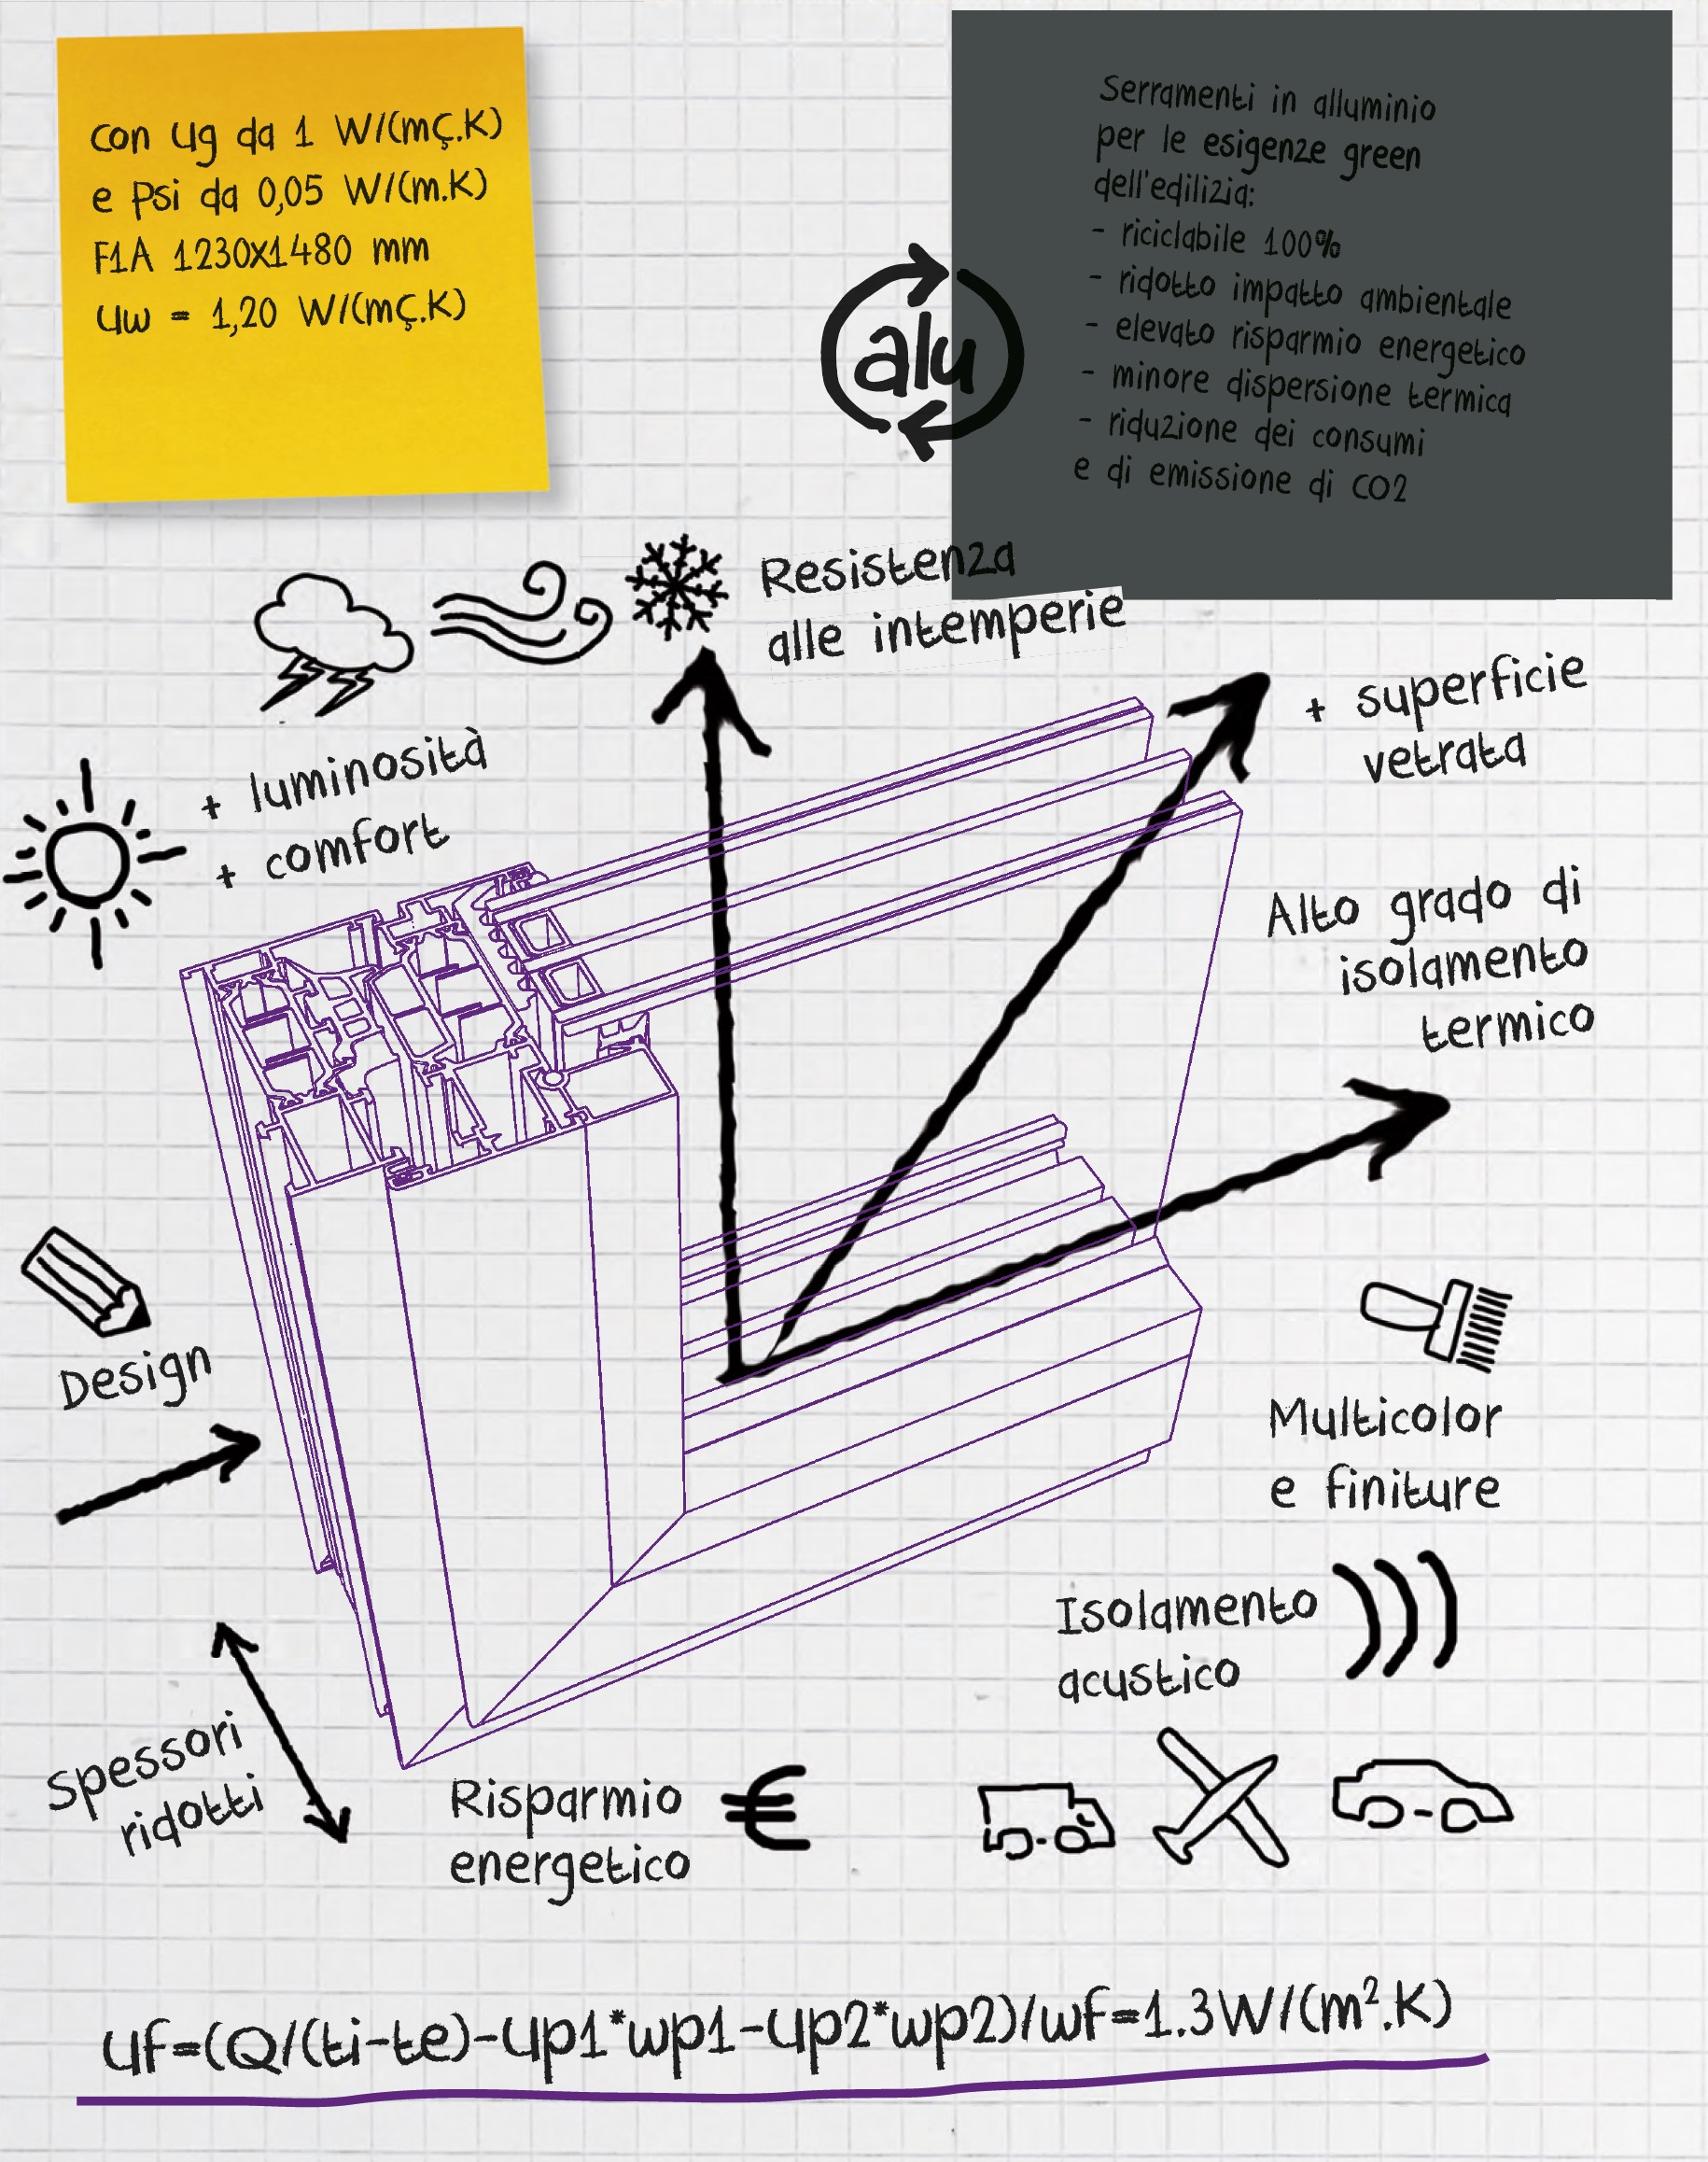 con Ug da 1 W/(mç.K)
e Psi da 0,05 W/(m.K)
F1A 1230x1480 mm
Uw = 1,20 W/(mç.K)
Serramenti in alluminio
per le esigenze green
dell'edilizia:
- riciclabile 100%
- ridotto impatto ambientale
- elevato risparmio energetico
- minore dispersione termica
- riduzione dei consumi
e di emissione di CO2
alu
Resistenza
alle intemperie
+ superficie
vetrata
+ luminosità
+ comfort
Alto grado di
isolamento
termico
Design
Multicolor
e finiture
Isolamento
acustico
Spessori
ridotti
Risparmio
energetico
€
Uf=(Q/(ti-te)-Up1*wp1-Up2*wp2)/wf=1.3W/(m².K)